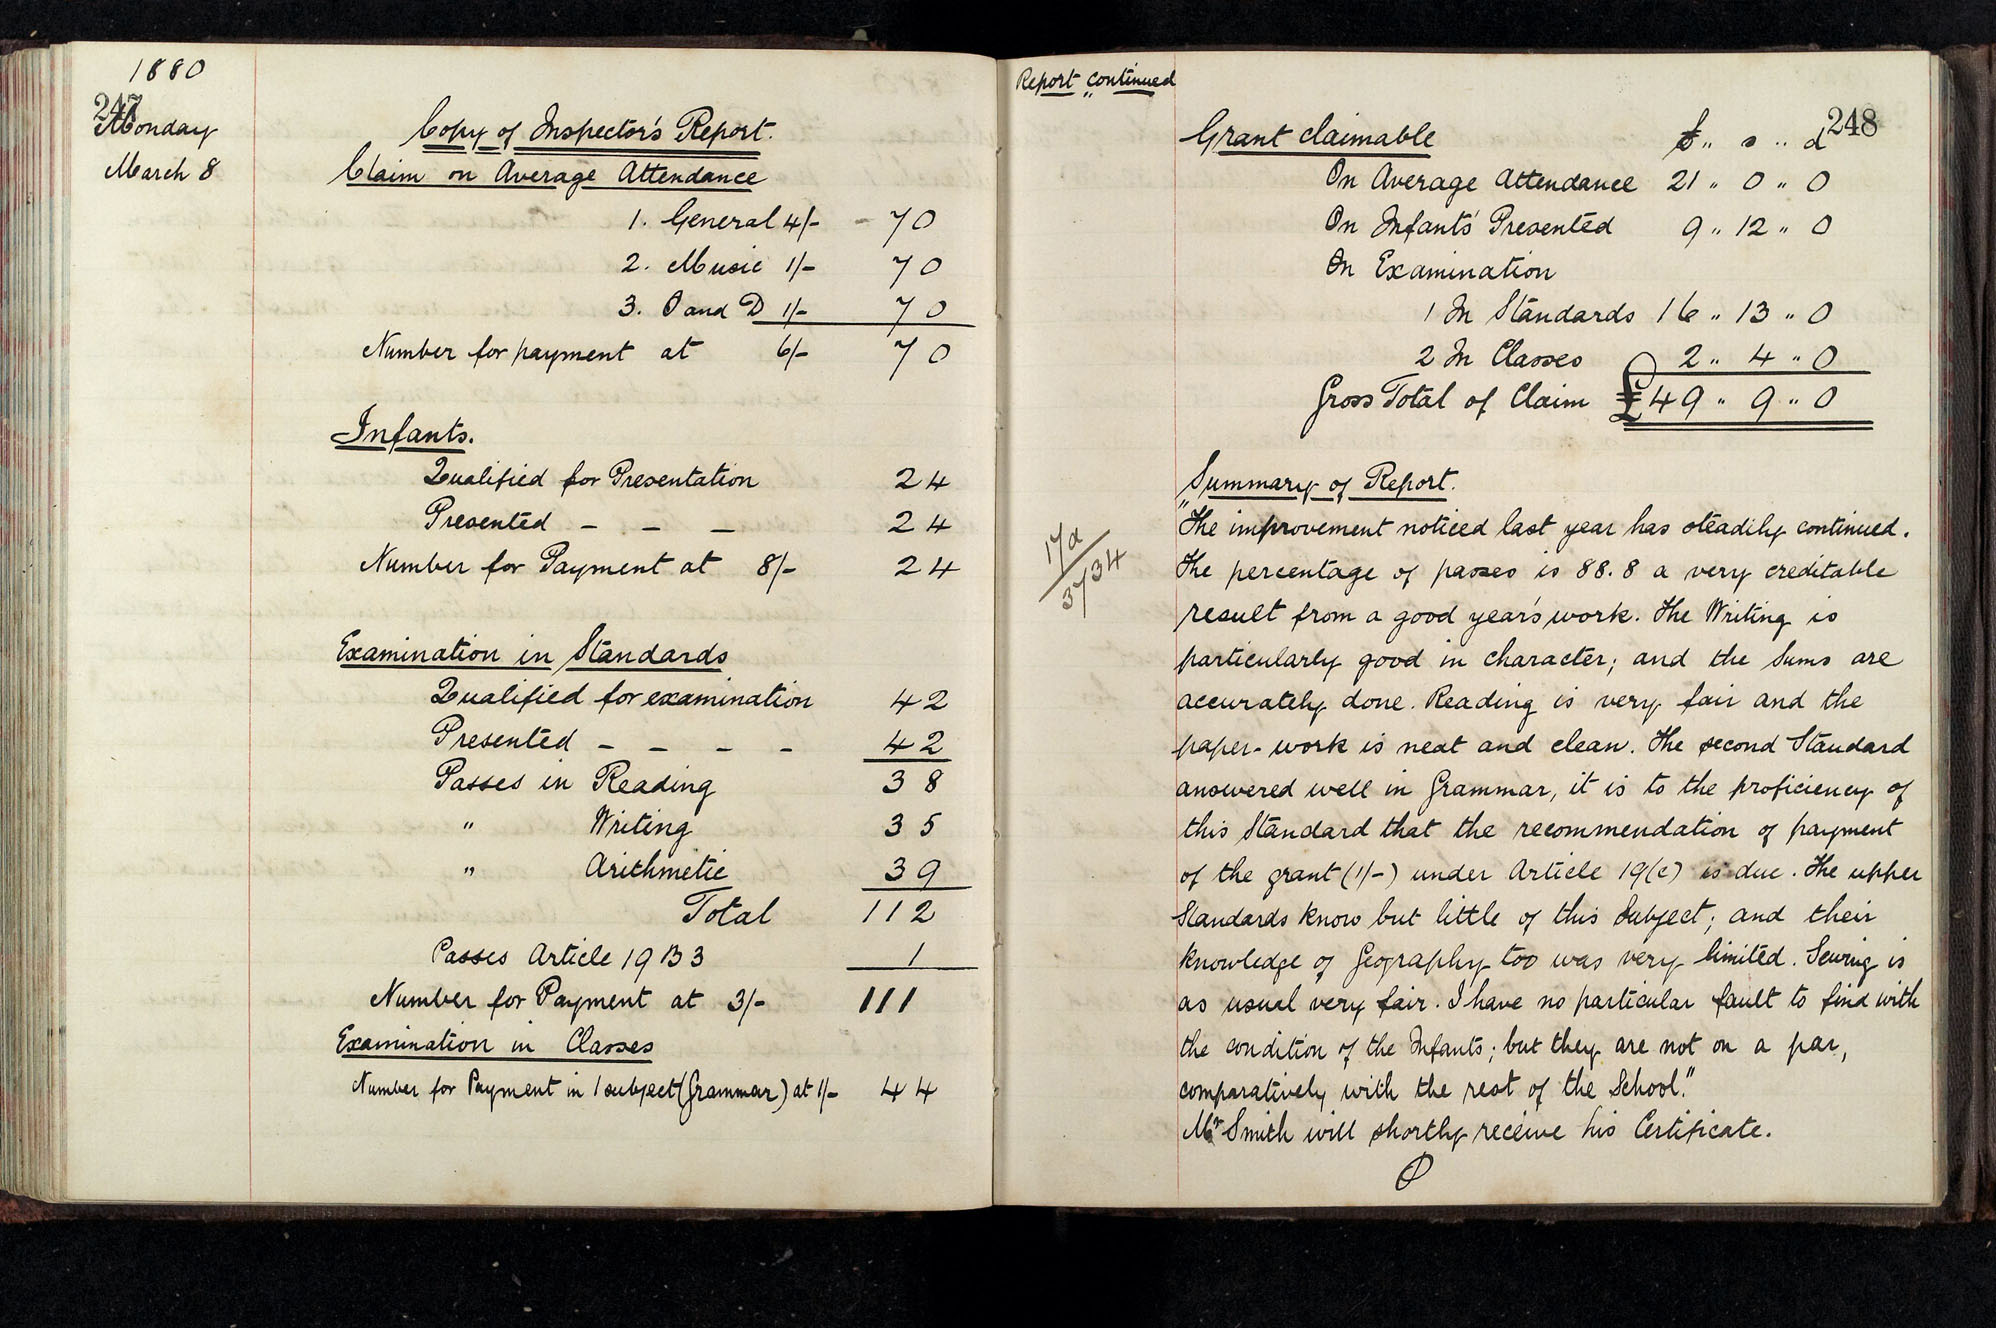 1880
247
Monday
March 8
Copy of Inspector's Report.
Claim on Average Attendance
1. General 4/- - 70
2. Music 1/- 70
3. O and D 1/- 70
Number for payment at 6/- 70
Infants.
Qualified for Presentation 24
Presented - - - 24
Number for Payment at 8/- 24
Examination in Standards
Qualified for examination 42
Presented - - - - 42
Passes in Reading 38
" Writing 35
" Arithmetic 39
Total 112
Passes Article 19 B 3 1
Number for Payment at 3/- 111
Examination in Classes
Number for Payment in 1 subject (Grammar) at 1/- 44
Report continued
248
Grant claimable £ " s " d
On Average Attendance 21 " 0 " 0
On Infants Presented 9 " 12 " 0
On Examination
1 In Standards 16 " 13 " 0
2 In Classes 2 " 4 " 0
Gross Total of Claim £49 " 9 " 0
Summary of Report.
"The improvement noticed last year has steadily continued.
The percentage of passes is 88.8 a very creditable
result from a good year's work. The Writing is
particularly good in character; and the Sums are
accurately done. Reading is very fair and the
paper-work is neat and clean. The second Standard
answered well in Grammar, it is to the proficiency of
this Standard that the recommendation of payment
of the grant (1/-) under Article 19(c) is due. The upper
Standards know but little of this Subject; and their
knowledge of Geography too was very limited. Sewing is
as usual very fair. I have no particular fault to find with
the condition of the Infants; but they are not on a par,
comparatively with the rest of the School."
Mr Smith will shortly receive his Certificate.
17a
3734